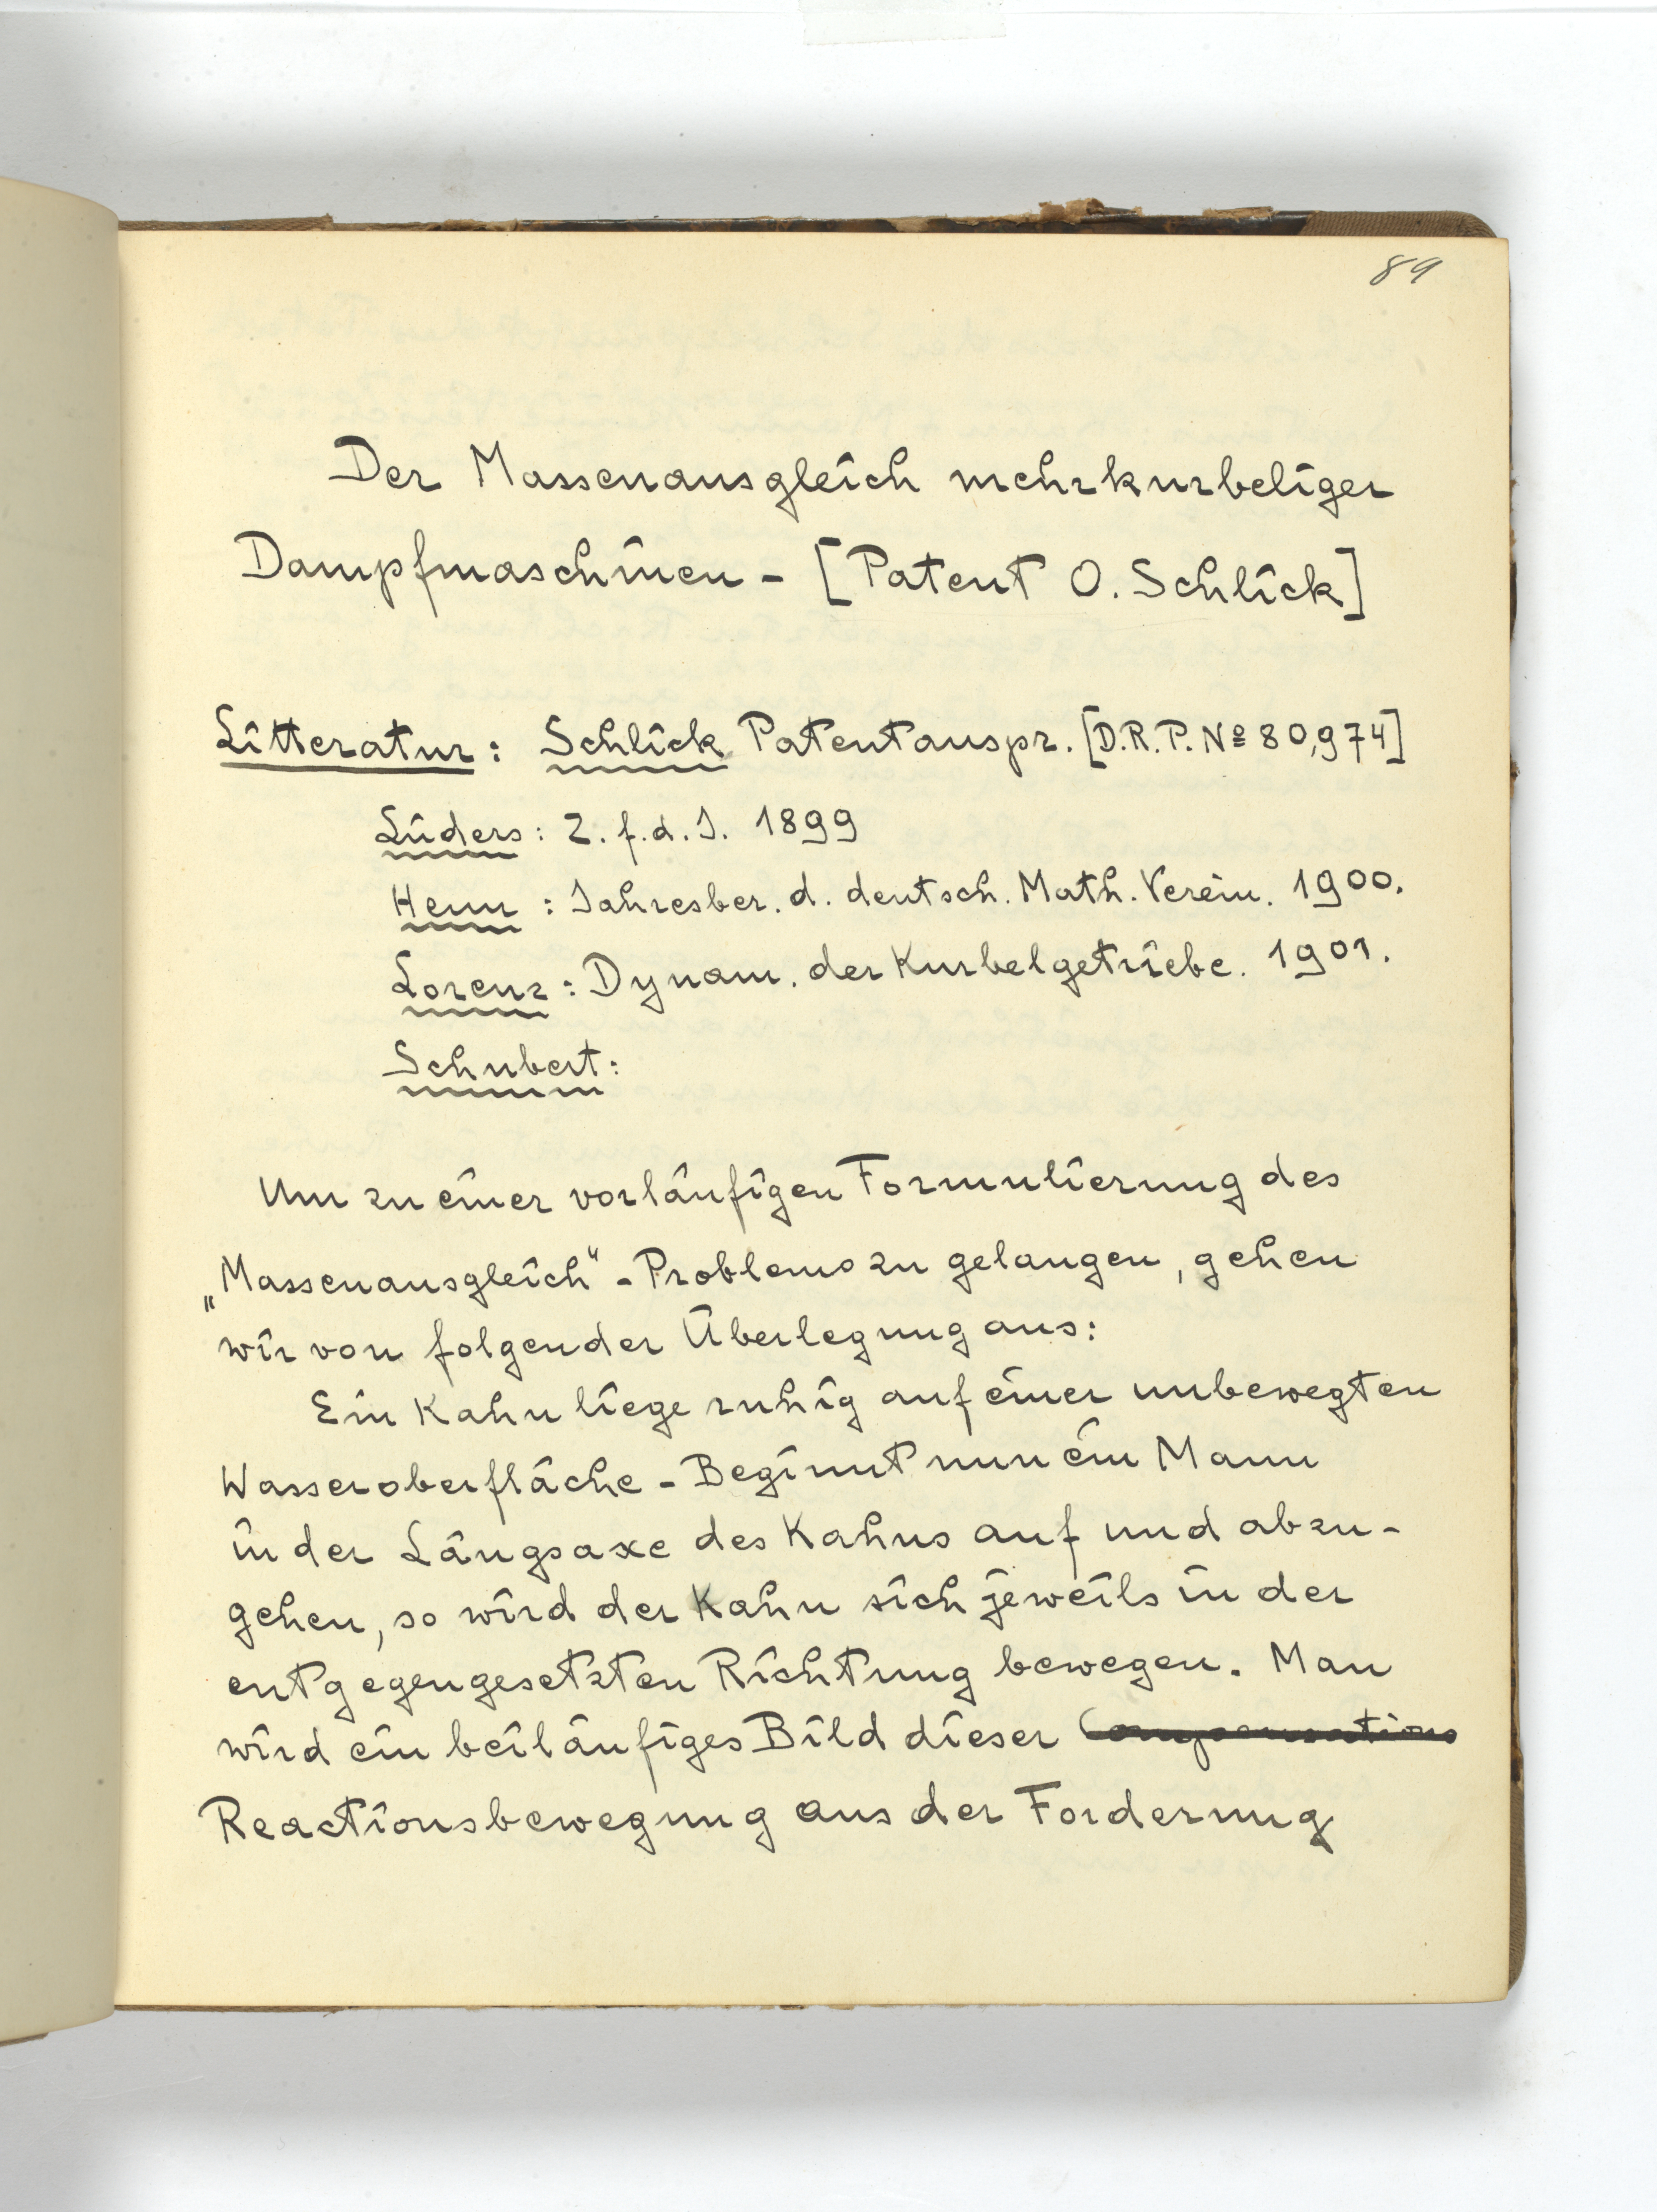 89
Der Massenausgleich mehrkurbeliger
Dampfmaschinen - [Patent O. Schlick]
Litteratur: Schlick Patentanspr. [D.R.P. Nº 80,974]
Lüders: Z. f. d. I. 1899
Heun: Jahresber. d. deutsch. Math. Verein. 1900.
Lorenz: Dynam. der Kurbelgetriebe. 1901.
Schubert:
Um zu einer vorläufigen Formulierung des
„Massenausgleich“-Problems zu gelangen, gehen
wir von folgender Überlegung aus:
Ein Kahn liege ruhig auf einer unbewegten
Wasseroberfläche - Beginnt nun ein Mann
in der Längsaxe des Kahns auf und abzu-
gehen, so wird der Kahn sich jeweils in der
entgegengesetzten Richtung bewegen. Man
wird ein beiläufiges Bild dieser Compensations
Reactionsbewegung aus der Forderung